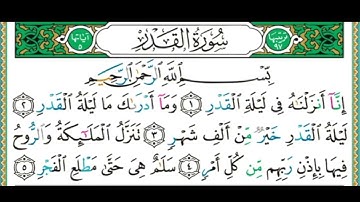 مرتبتها ٩٧ سُورَةُ الْقَدْرِ آياتها ٥
بِسْمِ اللَّهِ الرَّحْمَٰنِ الرَّحِيمِ
إِنَّا أَنزَلْنَاهُ فِي لَيْلَةِ الْقَدْرِ ﴿١﴾ وَمَا أَدْرَاكَ مَا لَيْلَةُ الْقَدْرِ ﴿٢﴾
لَيْلَةُ الْقَدْرِ خَيْرٌ مِّنْ أَلْفِ شَهْرٍ ﴿٣﴾ تَنَزَّلُ الْمَلَائِكَةُ وَالرُّوحُ
فِيهَا بِإِذْنِ رَبِّهِم مِّن كُلِّ أَمْرٍ ﴿٤﴾ سَلَامٌ هِيَ حَتَّىٰ مَطْلَعِ الْفَجْرِ ﴿٥﴾